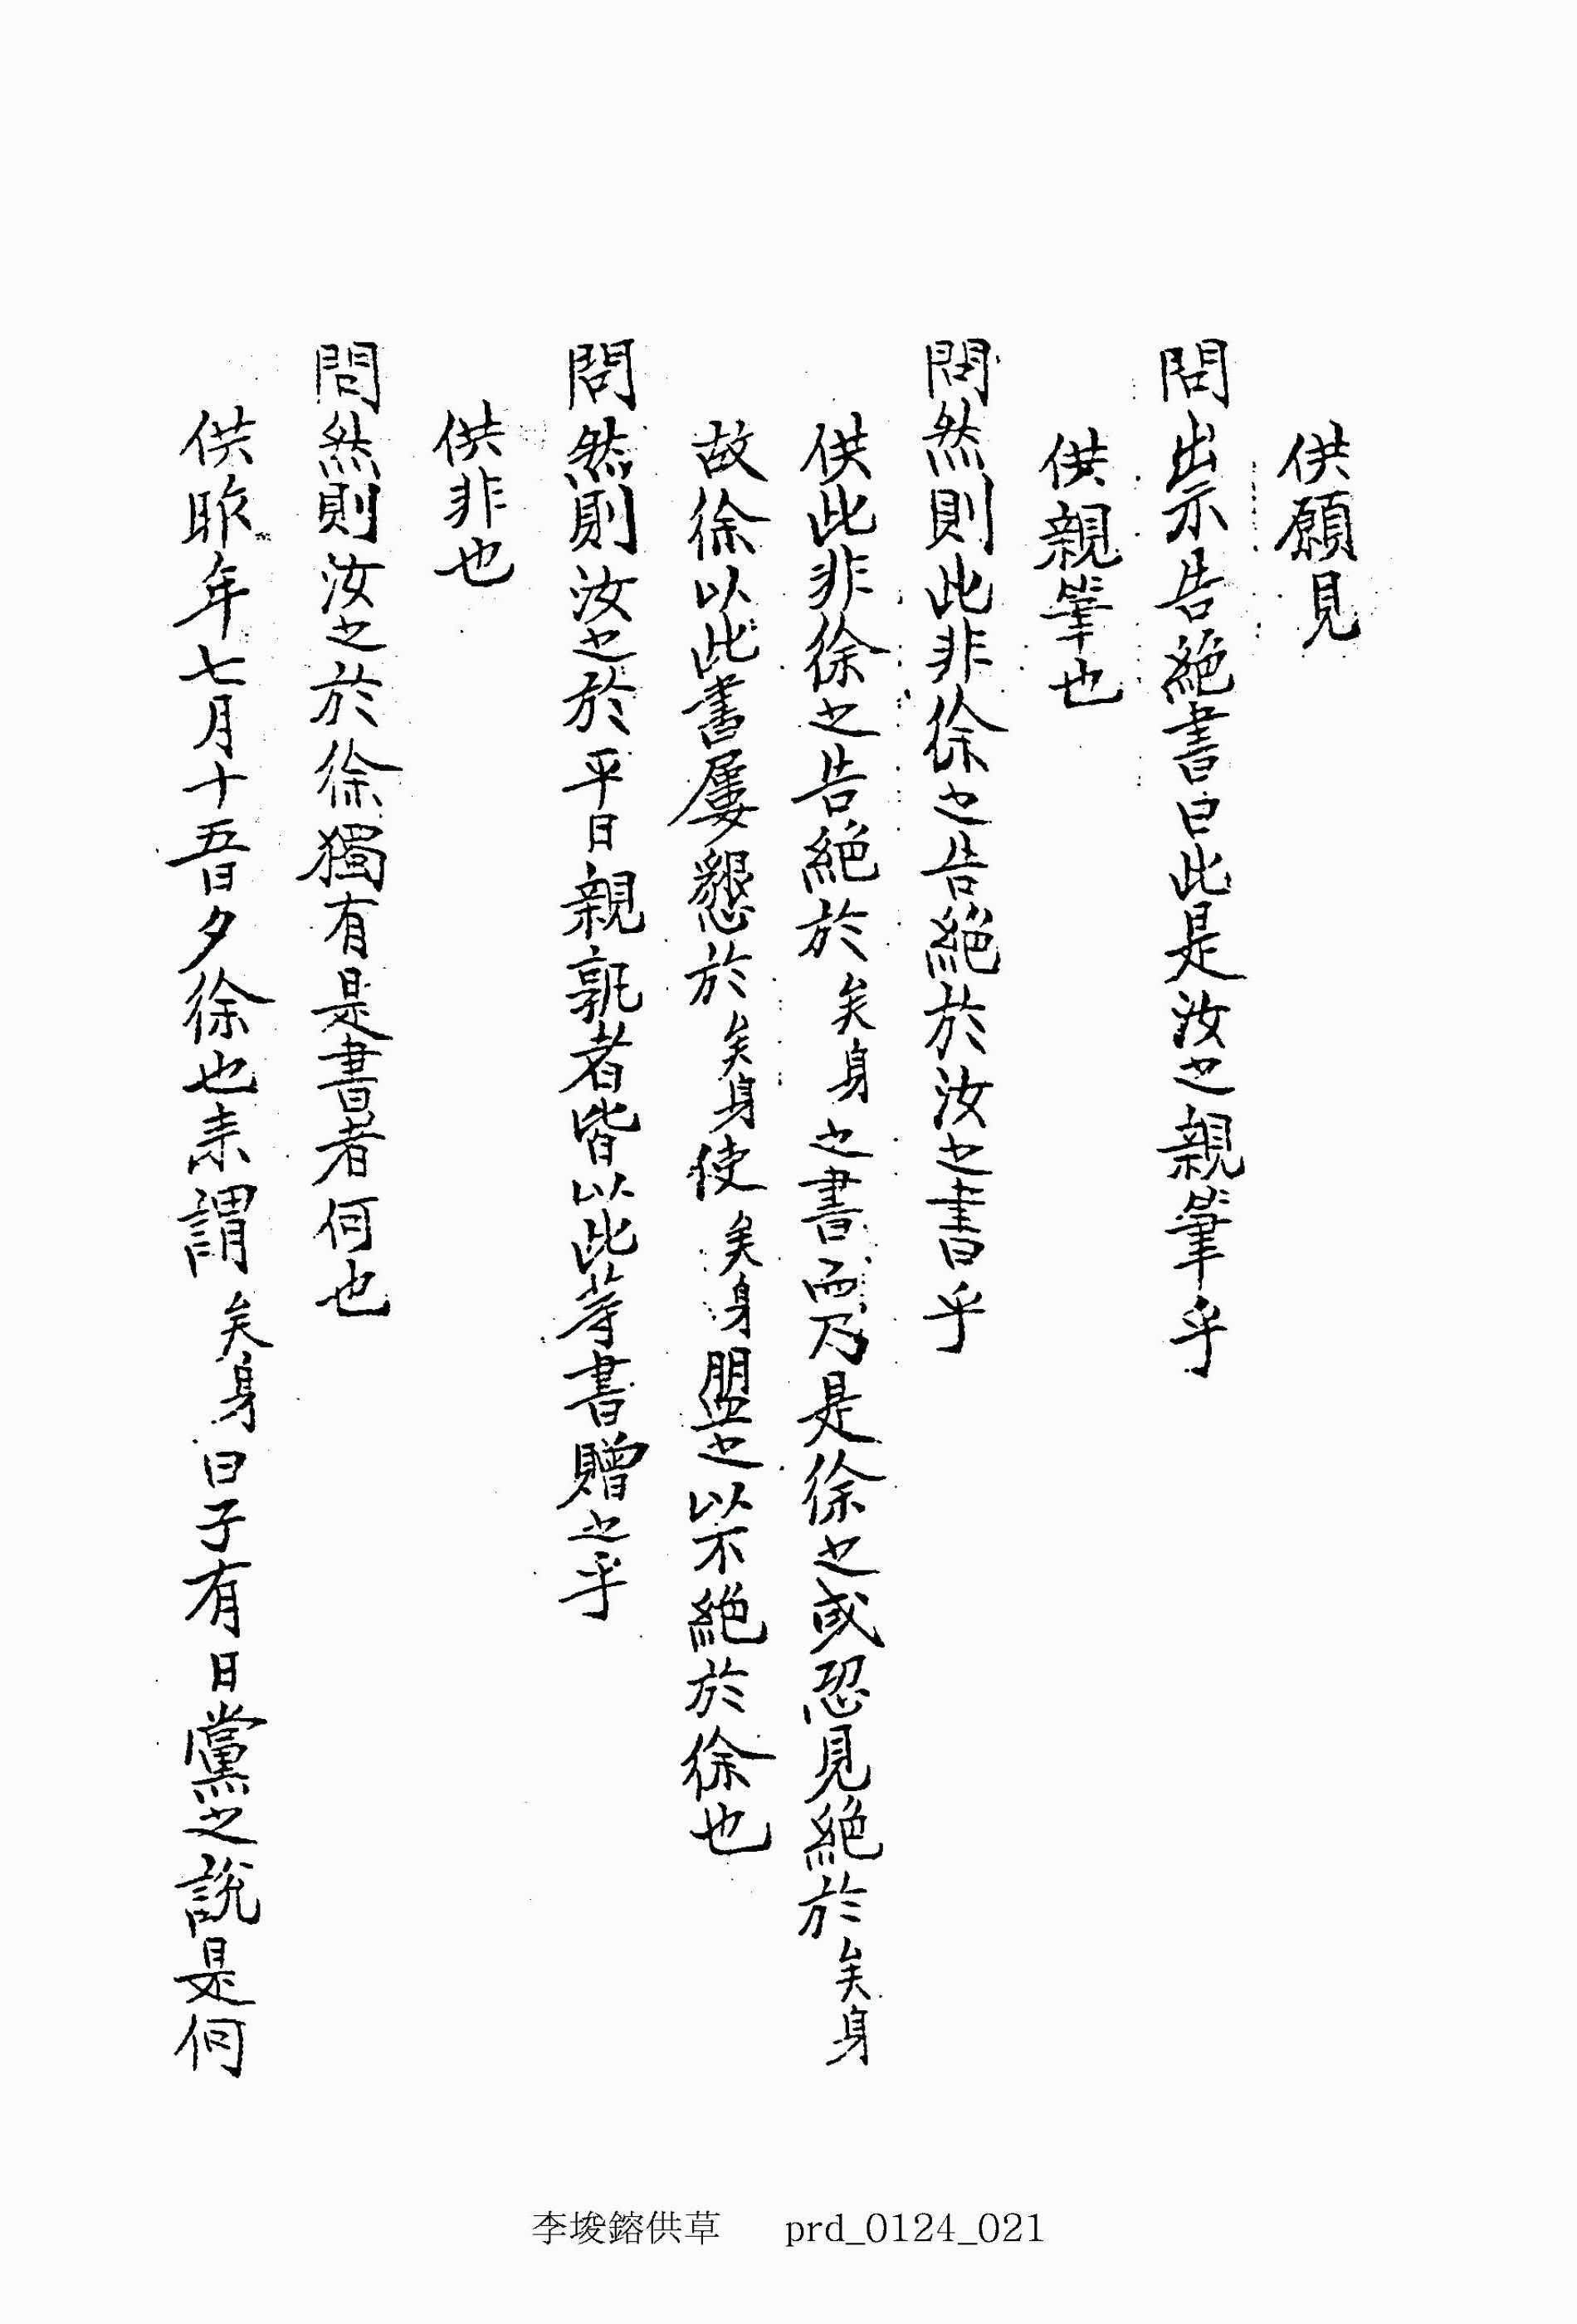 供願見
問出示告絶書曰此是汝之親筆乎
供親筆也
問然則此非徐之告絶於汝之書乎
供此非徐之告絶於矣身之書而乃是徐之或恐見絶於矣身
故徐以此書屢懇於矣身使矣身盟之以不絶於徐也
問然則汝之於平日親孰者皆以此等書贈之乎
供非也
問然則汝之於徐獨有是書者何也
供昨年七月十五日夕徐也来謂矣身曰子有日黨之說是何
李埈鎔供草 prd_0124_021